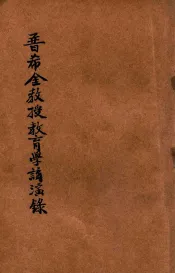 普希金教授教育學講演錄